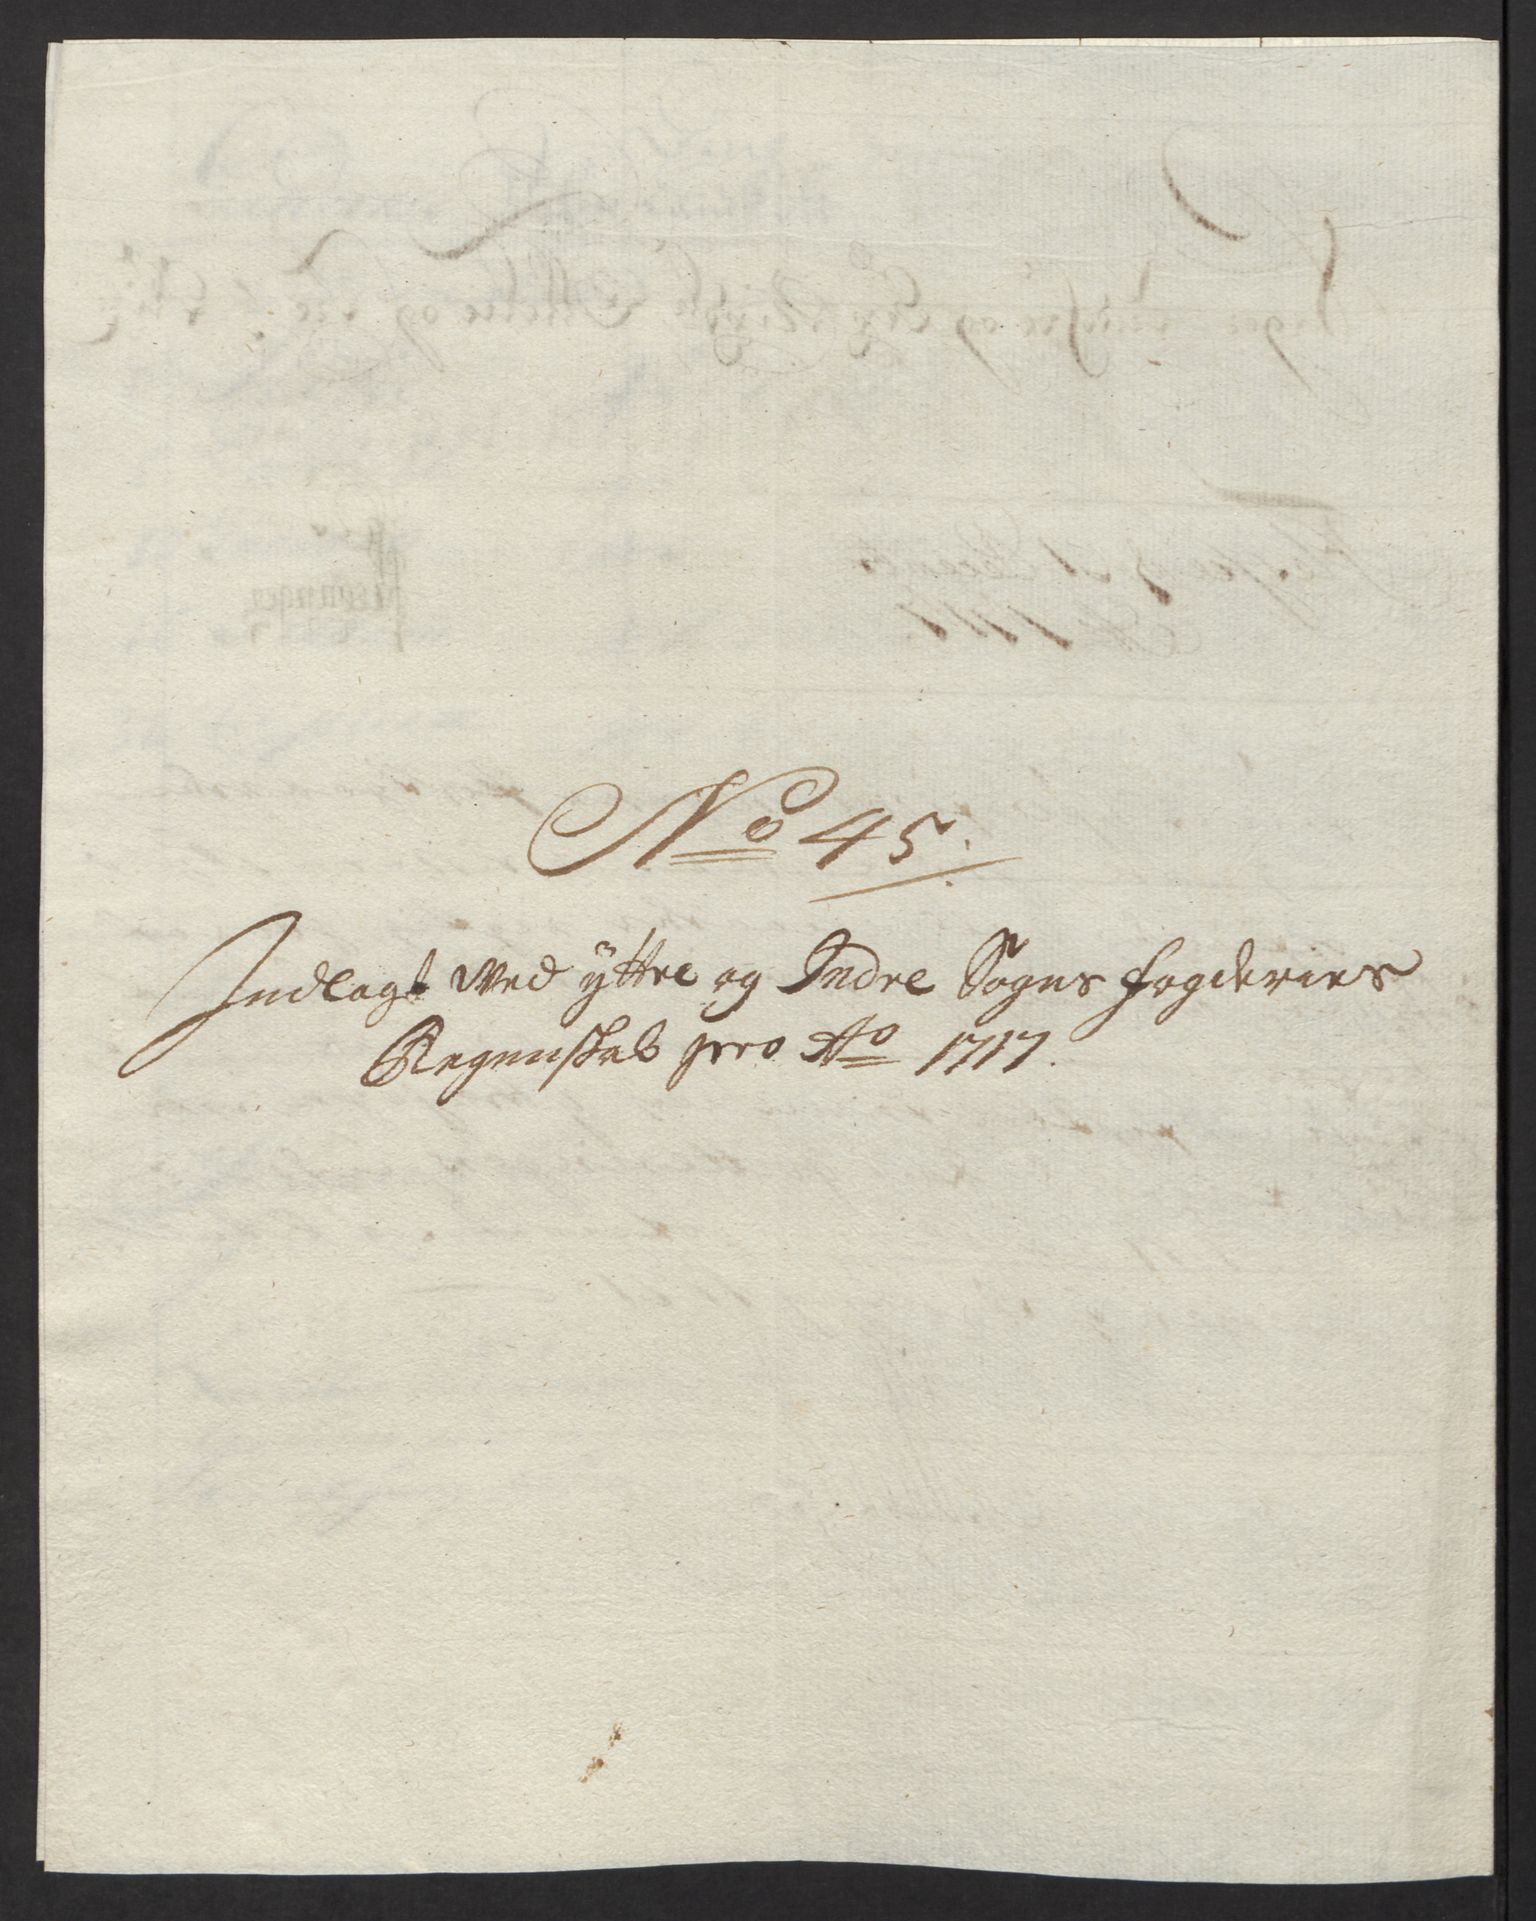 No 45.
Indlagt Wed ÿttre og Indre Sogns fogderies
Regenskab pro Ao 1717.